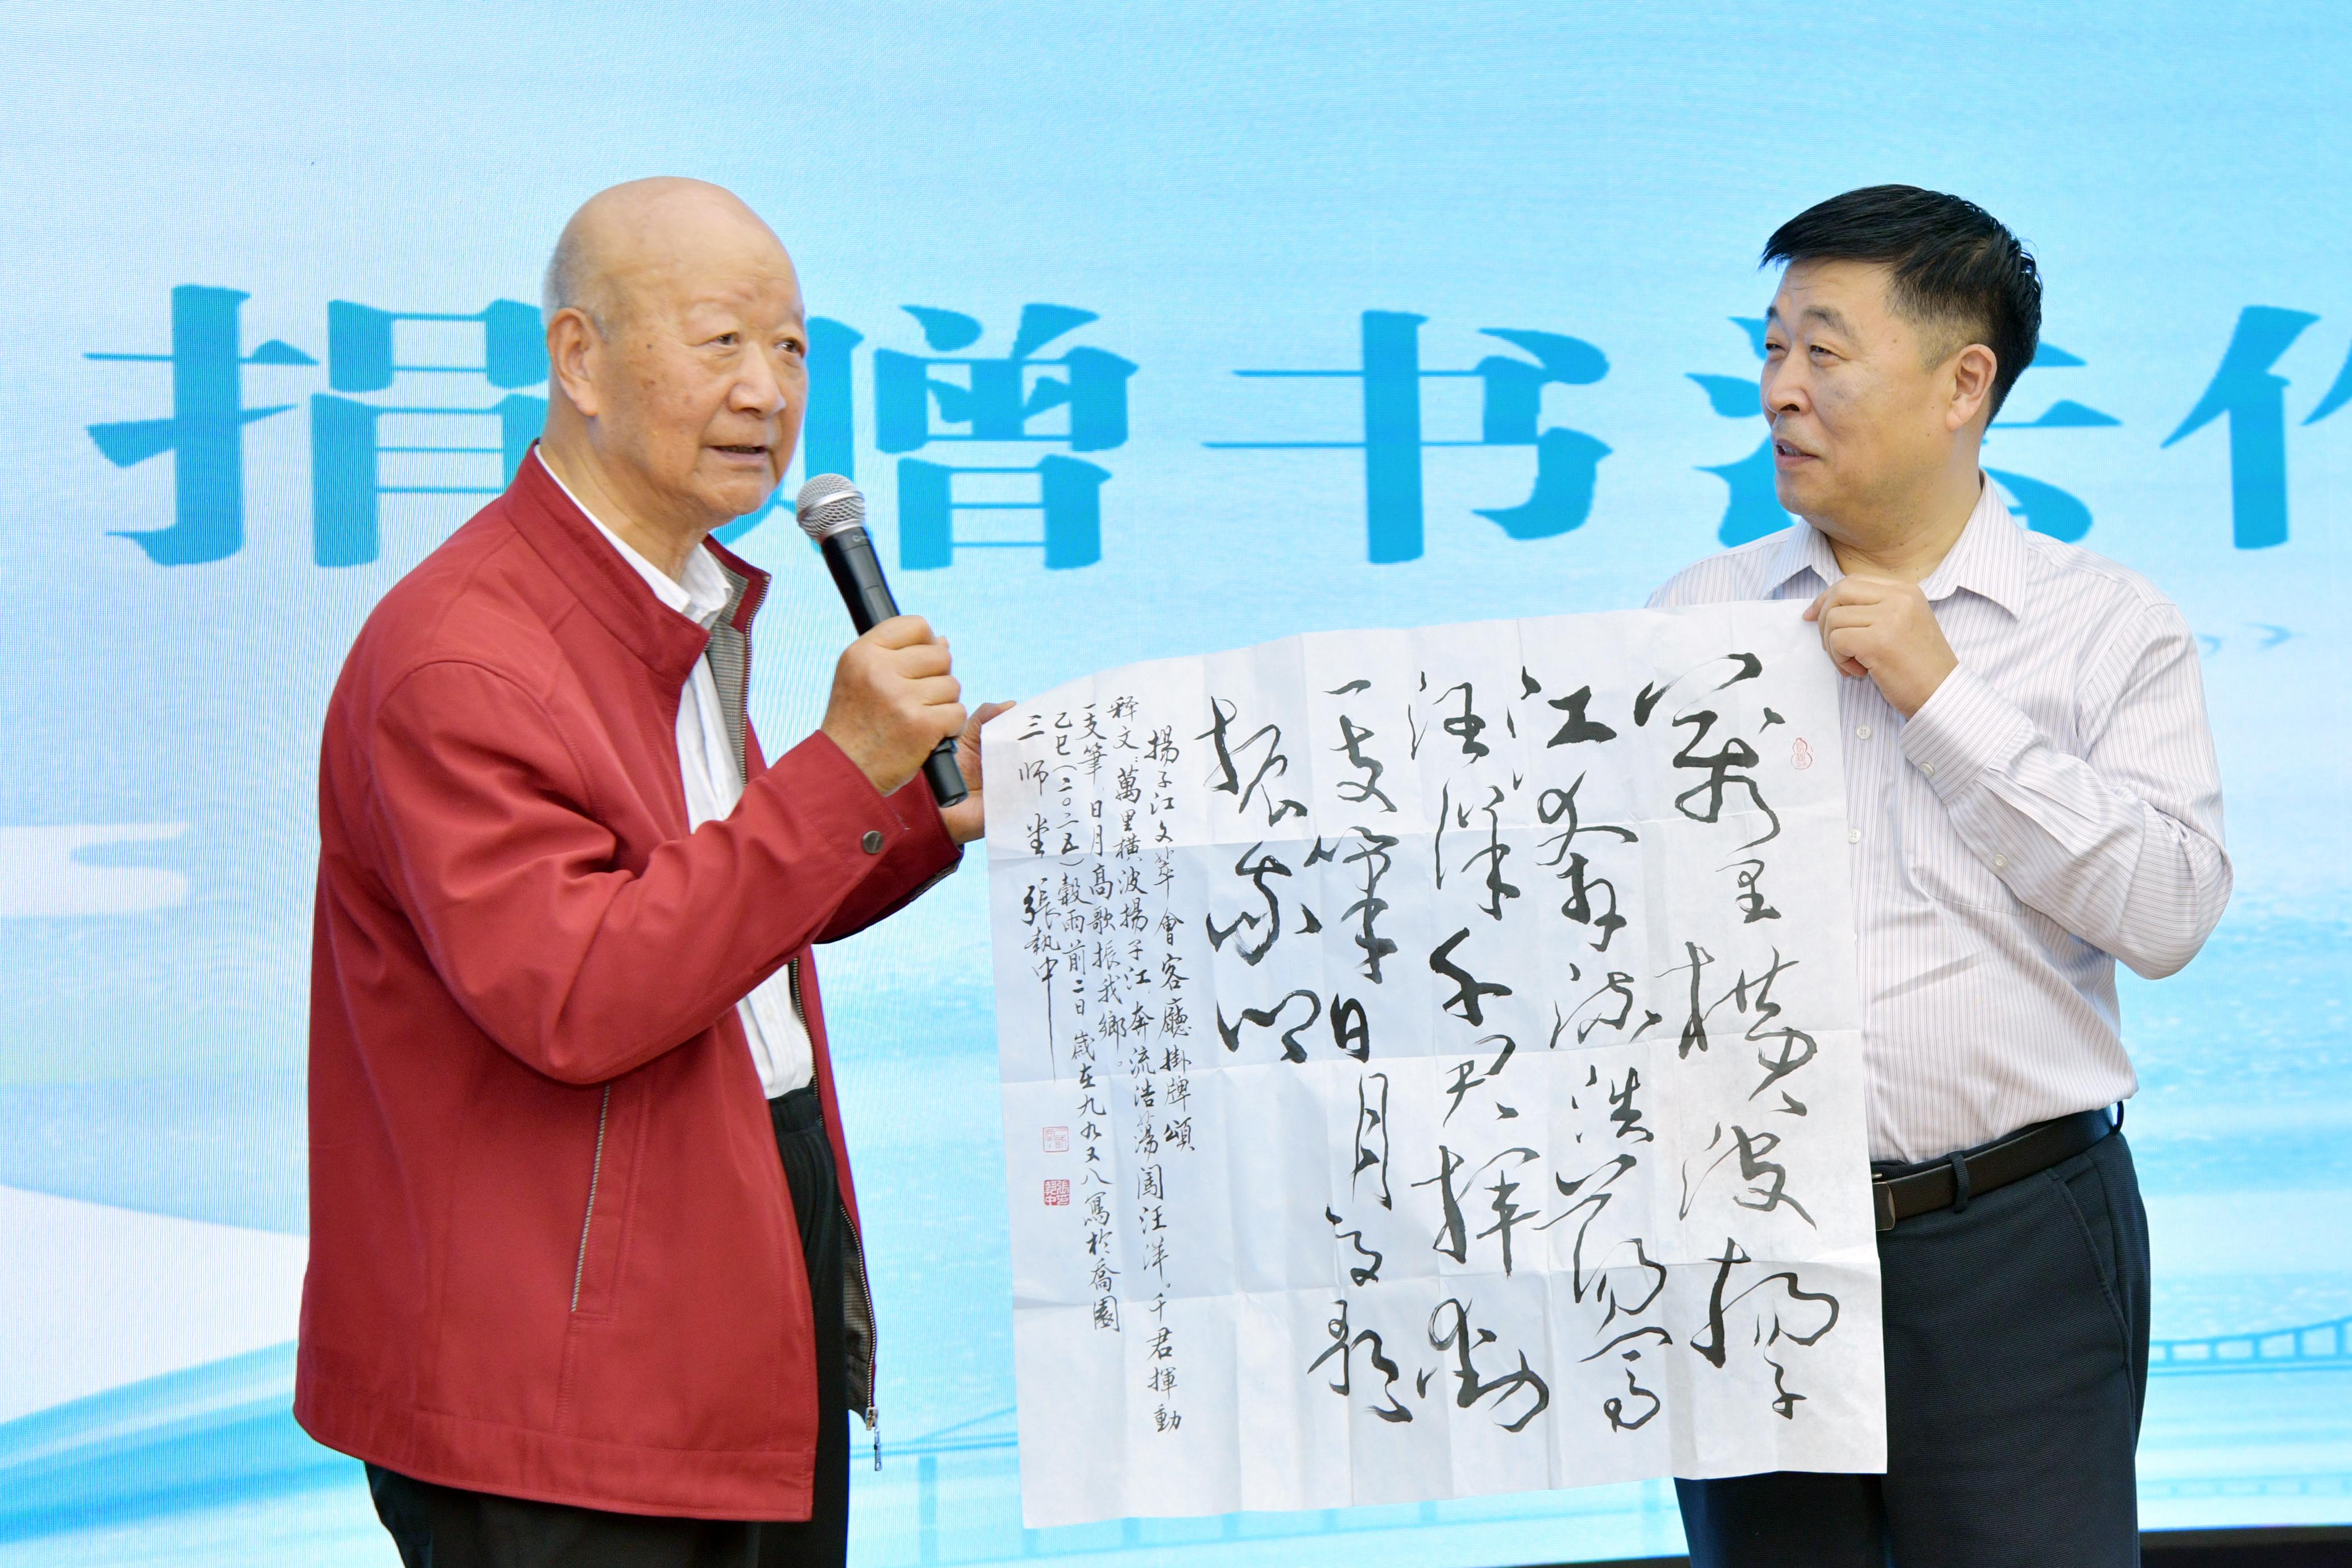 捐赠书法
萬里橫波揚子
江奔流浩蕩闖
汪洋千君揮動
一支筆日月高歌
振我鄉
揚子江文萃會客廳掛牌頌
释文：萬里橫波揚子江，奔流浩蕩闖汪洋。千君揮動
一支筆，日月高歌振我鄉。
乙巳（二〇二五）穀雨前二日歲在九九又八寫於喬園
三师堂 張執中